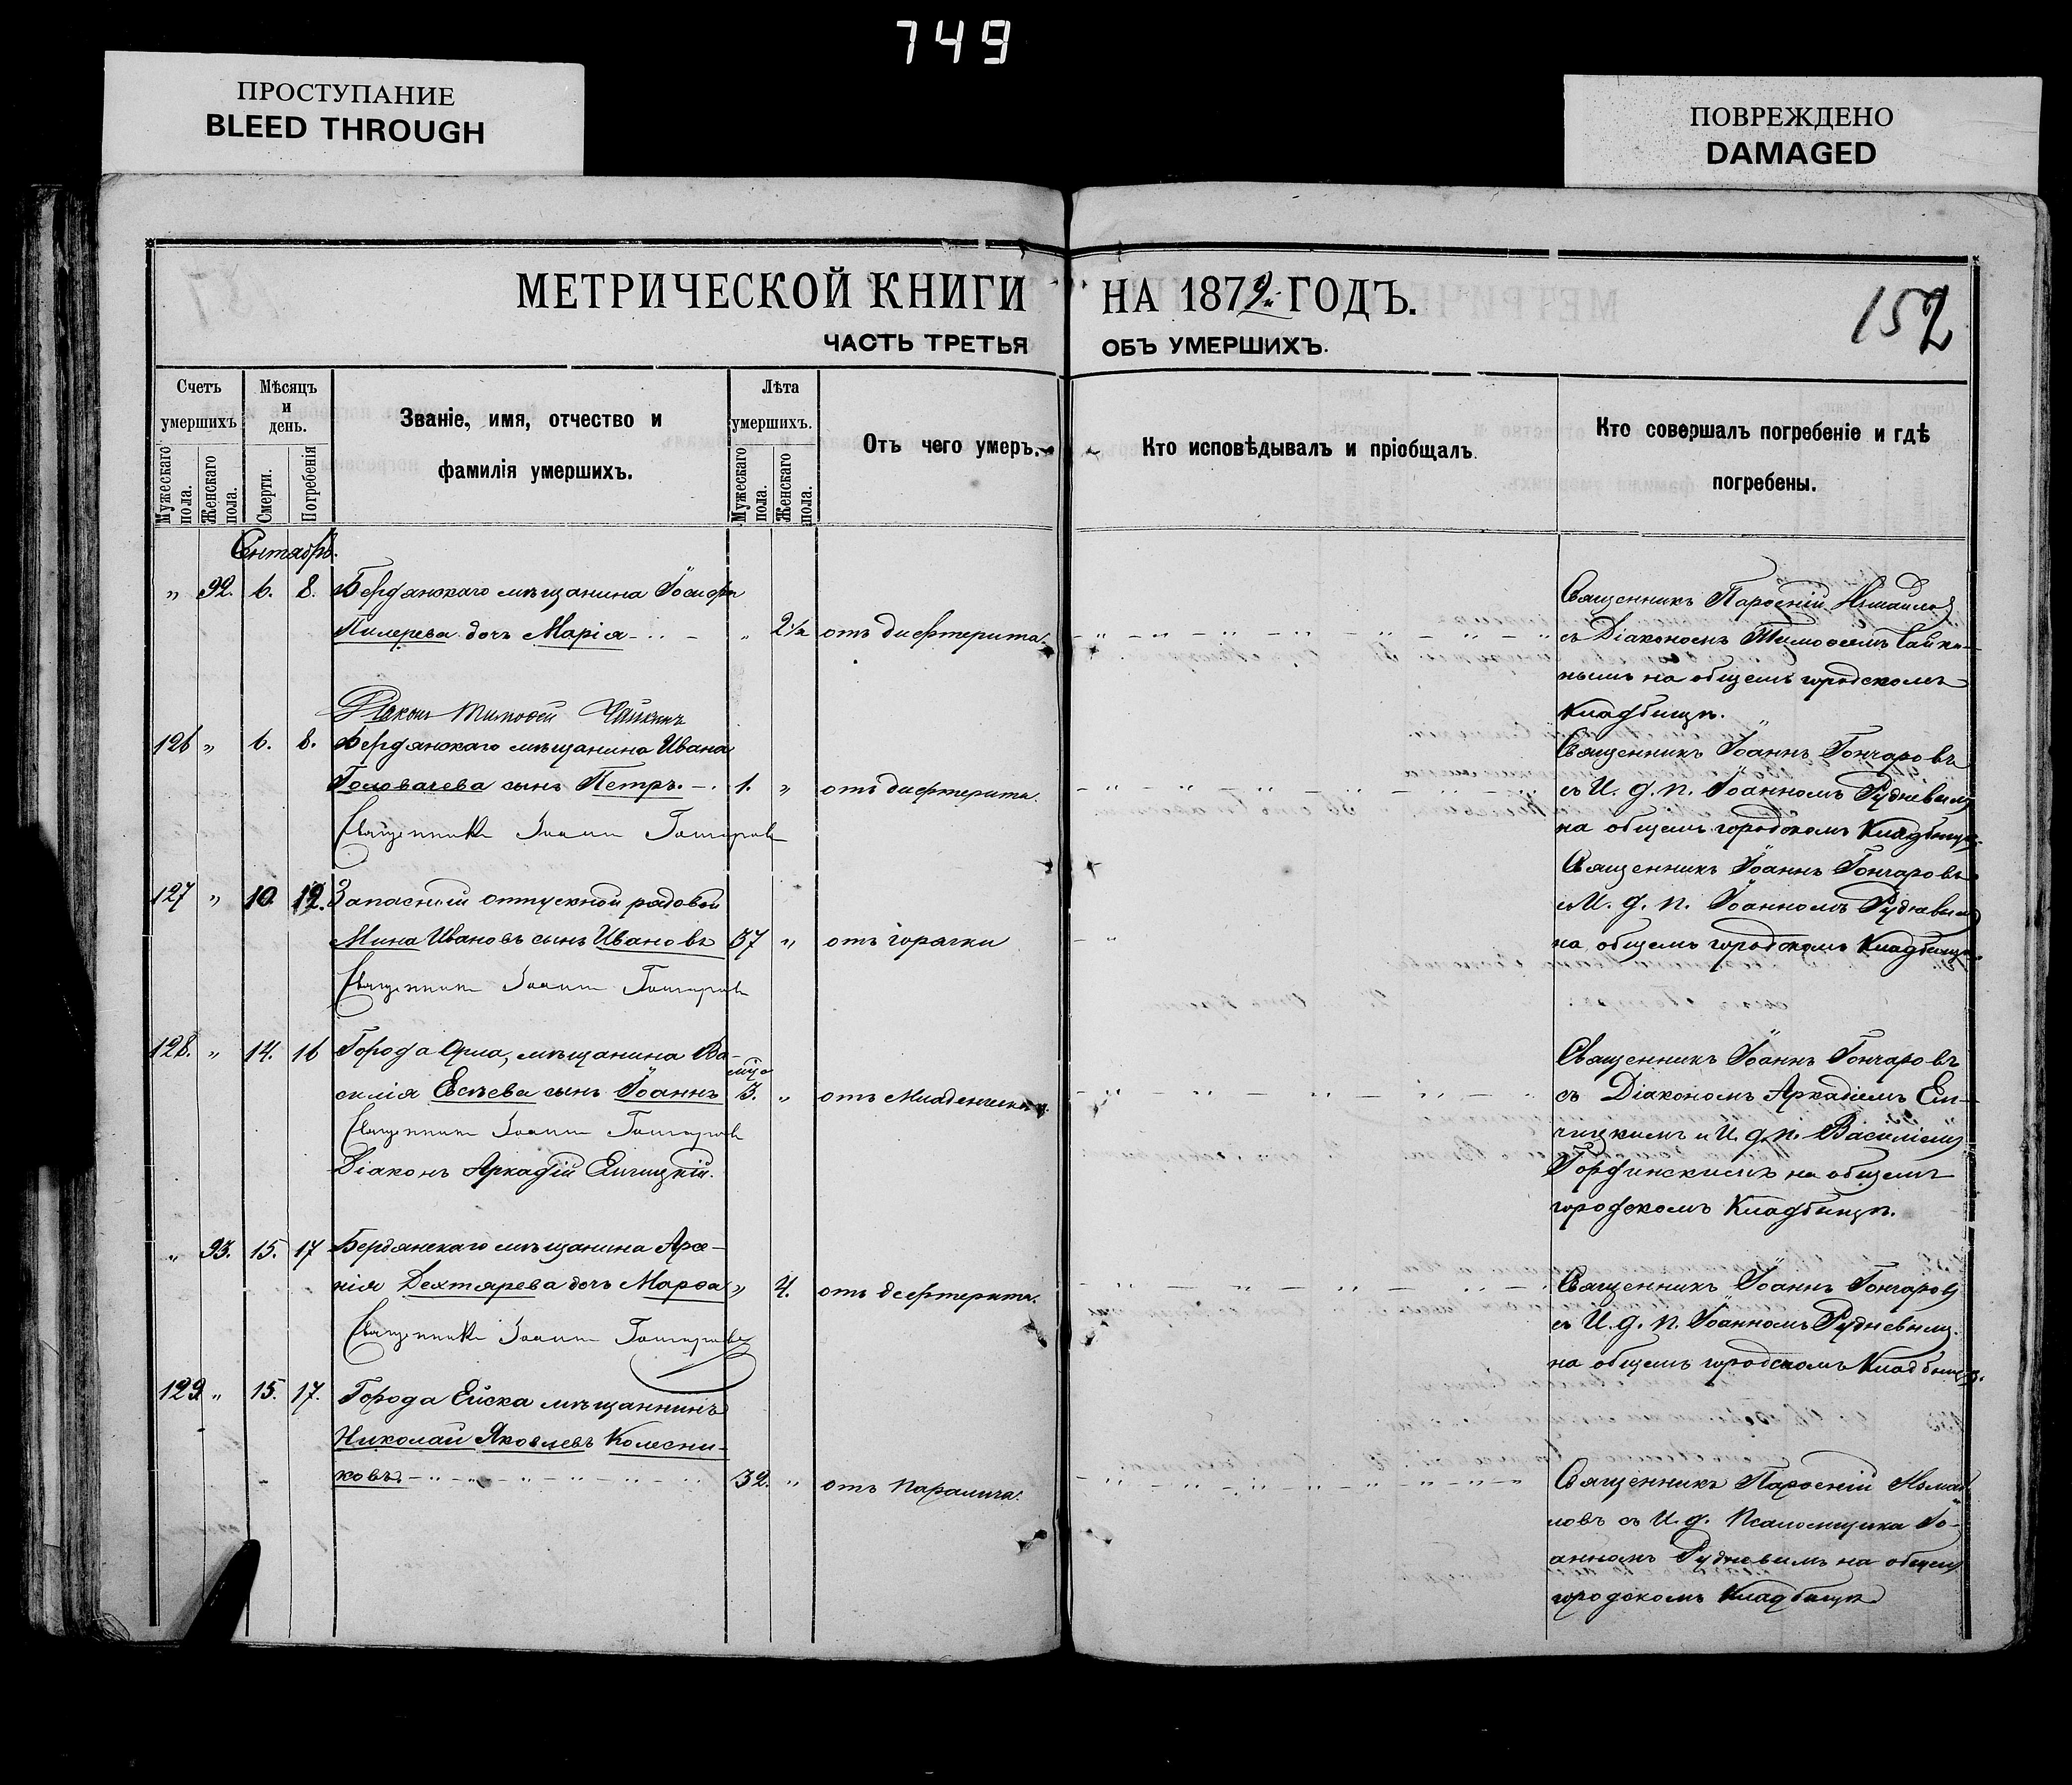 749
ПРОСТУПАНИЕ
BLEED THROUGH
ПОВРЕЖДЕНО
DAMAGED
МЕТРИЧЕСКОЙ КНИГИ НА 1879 ГОДЪ.
152
ЧАСТЬ ТРЕТЬЯ ОБЪ УМЕРШИХЪ.
Счетъ умершихъ
Мужескаго пола.
Женскаго пола.
Мѣсяцъ и день.
Смерти.
Погребенія
Званіе, имя, отчество и фамилія умершихъ.
Лѣта умершихъ.
Мужескаго пола.
Женскаго пола.
Отъ чего умеръ.
Кто исповѣдывалъ и пріобщалъ
Кто совершалъ погребеніе и гдѣ погребены.
Сентябрь.
" 92. 6. 8. Бердянскаго мѣщанина Іосифа
дочь Марія " 2½ отъ дифтерита
Священникъ Парѳеній
съ Діакономъ Тимоѳеемъ Чайки-
нымъ на общемъ городскомъ
Кладбищѣ.
Діаконъ Тимофей Чайкинъ
126 " 6. 8. Бердянскаго мѣщанина Ивана
Головачева сынъ Петръ. 1. " отъ дифтерита.
Священникъ Іоаннъ Гончаровъ
Священникъ Іоаннъ Гончаровъ
съ И. д. п. Іоанномъ Рудневымъ
на общемъ городскомъ Кладбищѣ.
127 " 10 12. Запасный отпускной рядовой
Мина Ивановъ сынъ Ивановъ 37 " отъ горячки
Священникъ Іоаннъ Гончаровъ
Священникъ Іоаннъ Гончаровъ
съ И. д. п. Іоанномъ Рудневымъ
на общемъ городскомъ Кладбищѣ.
128. " 14. 16 Города Орла, мѣщанина Ва-
силія Евсѣева сынъ Іоаннъ 3. " отъ младенческой
Священникъ Іоаннъ Гончаровъ
Діаконъ Аркадій Елчицкій.
Священникъ Іоаннъ Гончаровъ
съ Діакономъ Аркадіемъ Ел-
чицкимъ и И. д. п. Василіемъ
Гординскимъ на общемъ
городскомъ Кладбищѣ.
" 93. 15. 17 Бердянскаго мѣщанина Арсе-
нія Дехтярева дочь Марѳа " 4. отъ дефтерита.
Священникъ Іоаннъ Гончаровъ
Священникъ Іоаннъ Гончаровъ
съ И. д. п. Іоанномъ Рудневымъ.
на общемъ городскомъ Кладбищѣ.
129 " 15. 17. Города Ейска мѣщанинъ
Николай Яковлевъ Колесни-
ковъ 32. " отъ Паралича.
Священникъ Парѳеній
ловъ съ И. д. Псаломщика Іо-
анномъ Рудневымъ на общемъ
городскомъ Кладбищѣ